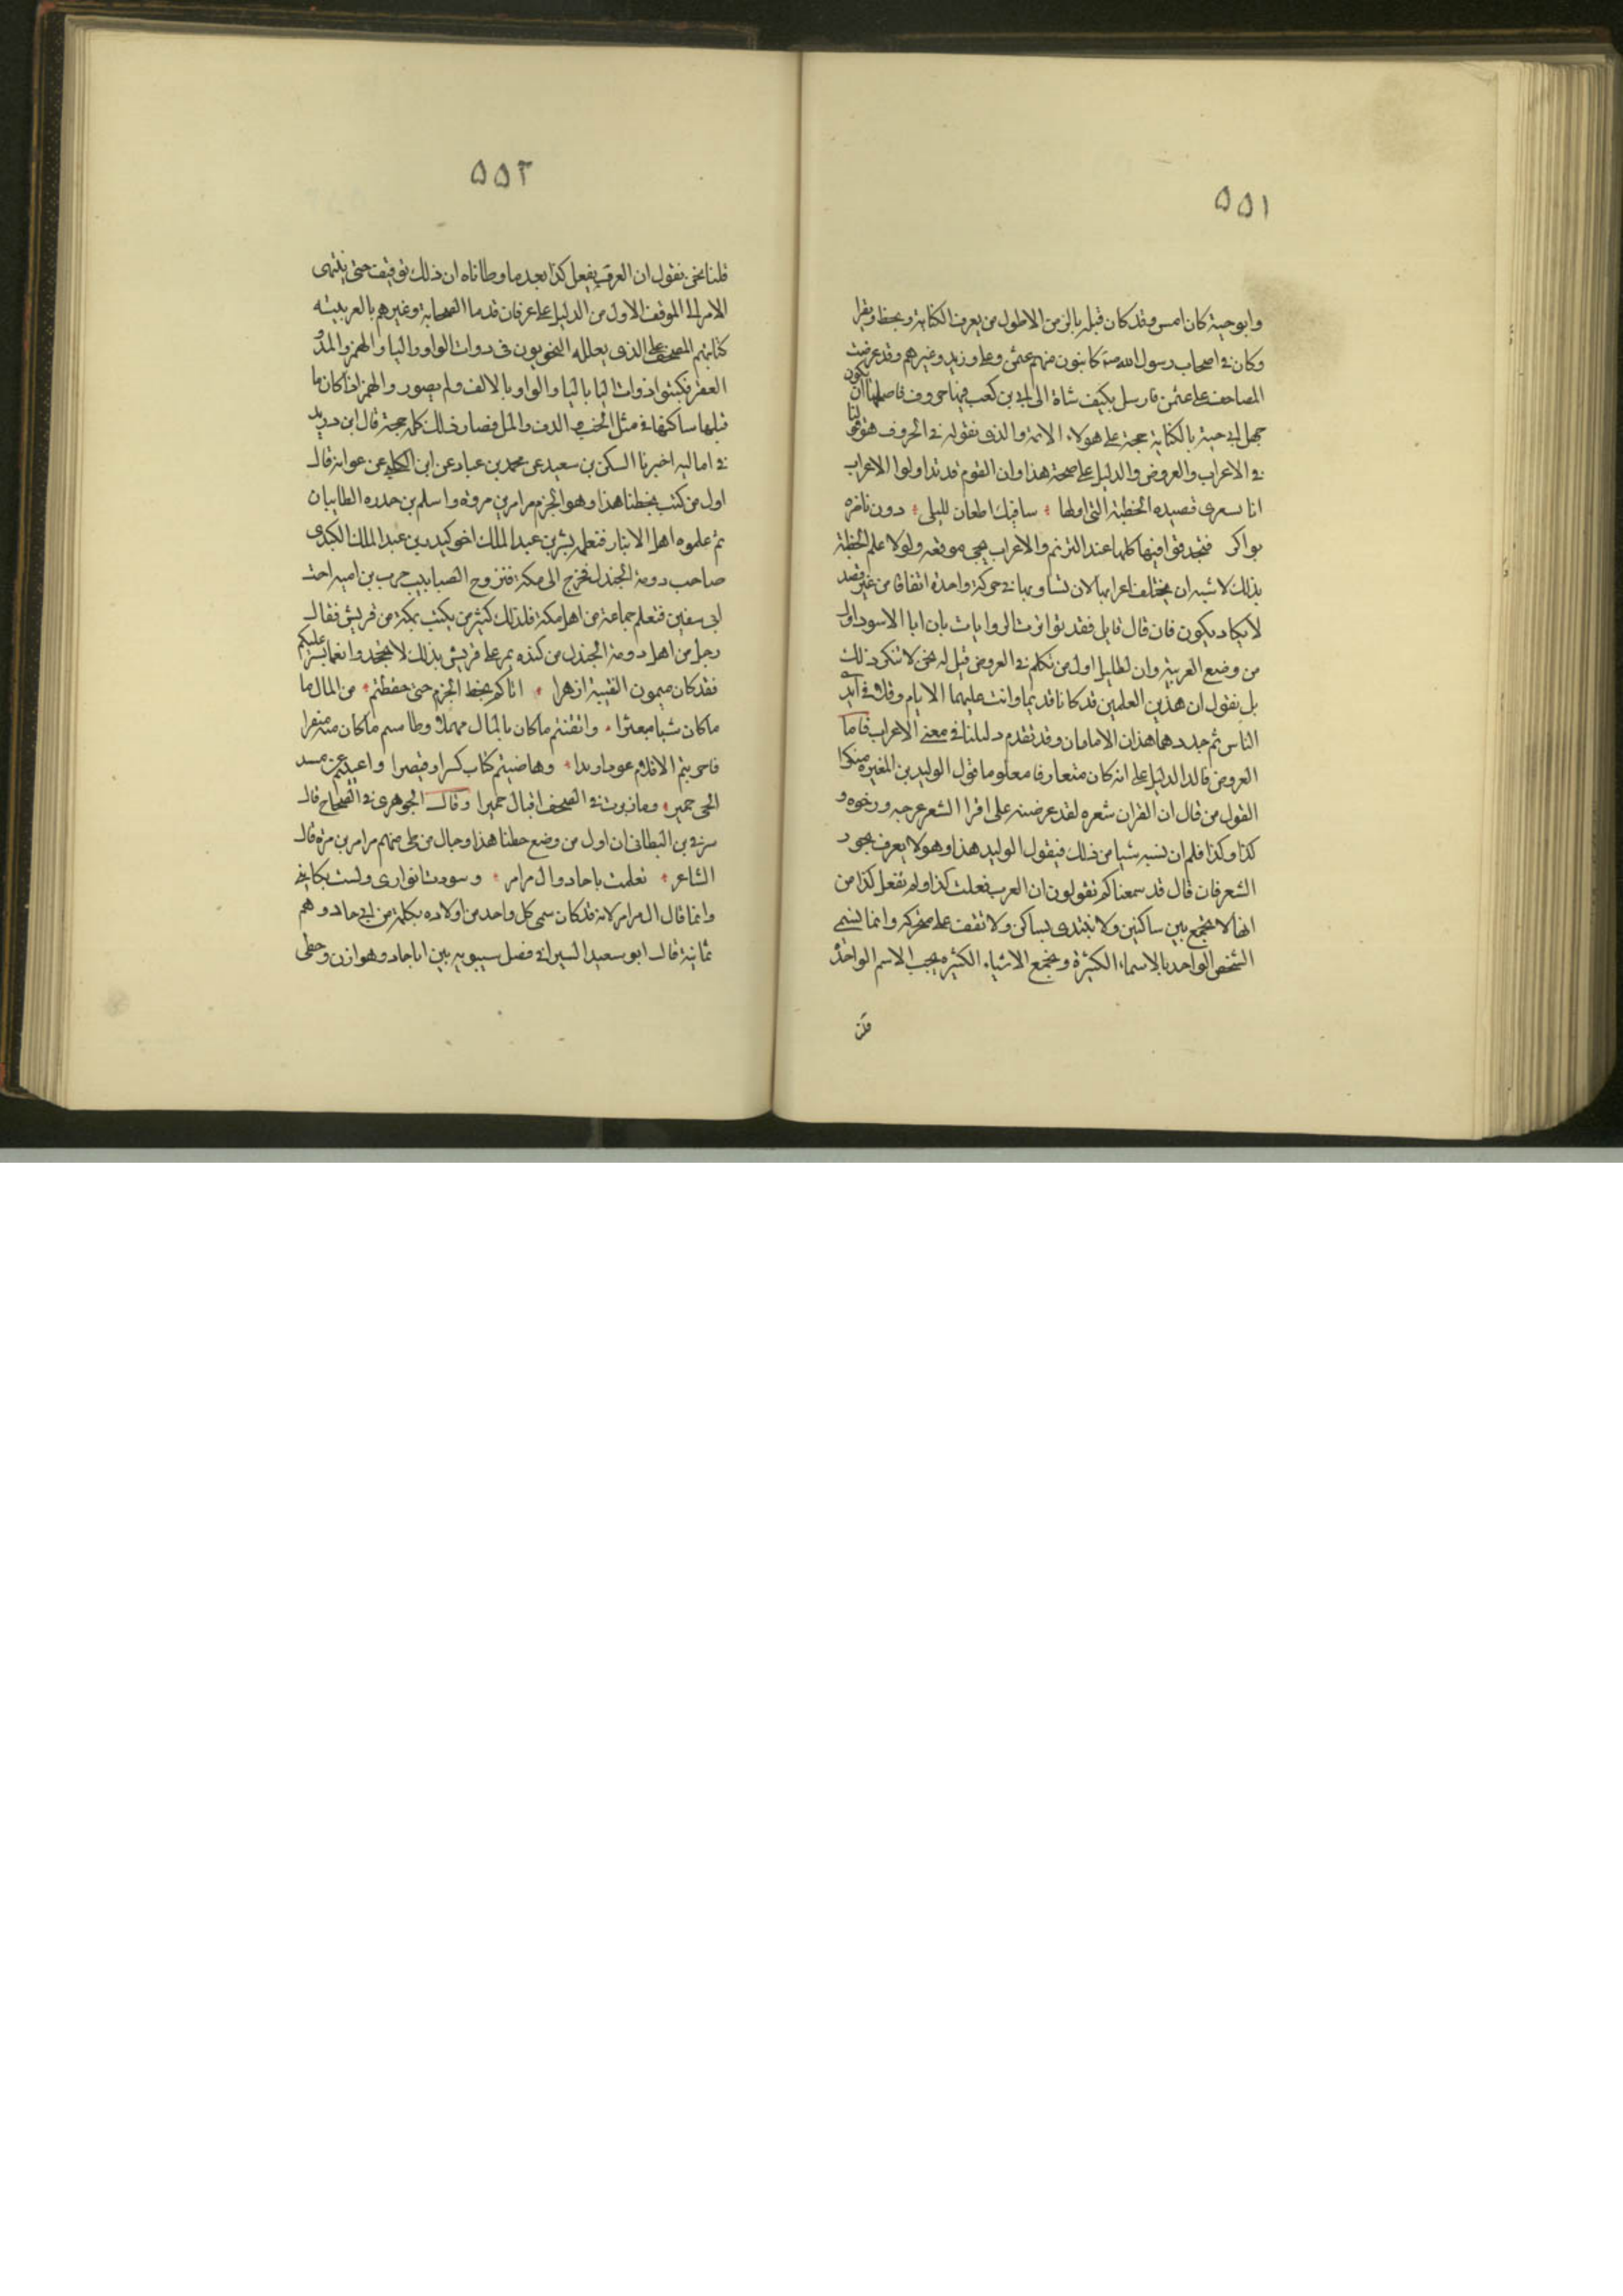 ٥٥١
وابو حية كان امس وقد كان قبله بالزمن الاطول من يعرف الكتابة ويخط ويقرا
وكان في اصحاب رسول الله كاتبون منهم عثمن وعلي وزيد وغيرهم وقد عرضت
المصاحف على عثمن فارسل بكيف شاة الى ابي بن كعب فيها حروف فاصلحها ان يكون
جهل ابي حية بالكتابة حجة على هولاء الايمة والذي نقوله في الحروف هو قولنا
في الاعراب والعروض والدليل على صحة هذا وان القوم قد تداولوا الاعراب
انا نسعرى قصيده الحطية التي اولها ؞ ساقتك اظعان لليلى ؞ دون ناظره
بواكر فنجد قوافيها كلها عند الترنم والاعراب يجي مرفوعه ولولا علم الحطية
بذلك لاشبه ان يختلف اعرابها لان تساويها في حركة واحدة اتفاقا من غير قصد
لا يكاد يكون فان قال قايل فقد تواترت الروايات بان ابا الاسود اول
من وضع العربية وان لخليل اول من تكلم في العروض قيل له نحن لا ننكر ذلك
بل نقول ان هذين العلمين قد كانا قديما واتت عليهما الايام وقلا في ايدي
الناس ثم جددهما هذان الامامان وقد تقدم دليلنا في معنى الاعراب فاما
العروض فالدالدليل على انه كان متعارفا معلوما قول الوليد بن المغيرة منكرا
القول من قال ان القران شعره لقد عرضته على اقرا الشعر هزجه ورجزه و
كذا وكذا فلم ان يشبه شيا من ذلك فيقول الوليد هذا وهو لا يعرف بحور
الشعر فان قال قد سمعناكم تقولون ان العرب فعلت كذا ولم تفعل كذا من
انها لا تجمع بين ساكنين ولا تبتدى بساكن ولا تقف على متحركه وانما تسمي
الشخص الواحد بالاسماء الكثيرة وتجمع الاشياء الكثيره تحت الاسم الواحد
قلن
٥٥٢
قلنا نحن نقول ان العرب يفعل كذا بعد ما وطاناه ان ذلك توقيف حتى ينتهى
الامر الى الموقف الاول من الدليل على عرفان قدما الصحابة وغيرهم بالعربيته
كتابتهم المصحف على الذى يعلله النحويون فى دوات الواو واليا والهمز والمد و
القصر فكتبوا ذوات اليا باليا والواو بالالف ولم يصور والهمز اذا كان ما
قبلها ساكنها في مثل الخبء و الدف والمل فصار ذلك كله حجة قال ابن دريد
في اماليه اخبرنا السكن بن سعيد عن محمد بن عباد عن ابن الكلبي عن عوانه قال
اول من كتب بخطنا هذا وهو الجزم مرامر بن مروه واسلم بن حدره الطاييان
ثم علموه اهل الانبار فتعلمه بشر بن عبد الملك اخو كيدر بن عبد الملك الكندى
صاحب دومة الجندل فخرج الى مكة فتزوج الصبا بيت حرب بن اميه اخت
ابى سفين فتعلم جماعة من اهل مكة فلذلك كثير من يكتب بمكة من قريش فقال
رجل من اهل دومة الجندل من كنده يمر على قريش بذلك لا تجحدوا نعما بشر عليكم
فقد كان ميمون النقيبة ازهرا ؞ اتاكم بخط الجزم حتى حفظتم ؞ من المال ما
ماكان شيا مبعثرا ؞ واتقنتم ماكان بالمال مهملا وطا مسم ماكان منه منفرا
فاجريتم الاقلام عودا وبدا ؞ وضاهيتم كتاب كسرا وقيصرا واغنيتم عن مسند
الحى حمير ؞ وما زبرت في الصحف اقيال حميرا وقال الجوهرى في الصحاح قال
شرقي بن القطامى ان اول من وضع خطنا هذا رجال من طى منهم مرامر بن مرة قال
الشاعر ؞ تعلمت باجاد وال مرامر ؞ وسودت اثوابى ولست بكاتب
وانما قال ال مرامر لانه قد كان سمى كل واحد من اولاده بكلمة من ابي جاد وهم
ثمانية قال ابو سعيد السيرافي فصل سيبويه بين ابا جاد وهوازن وحطى